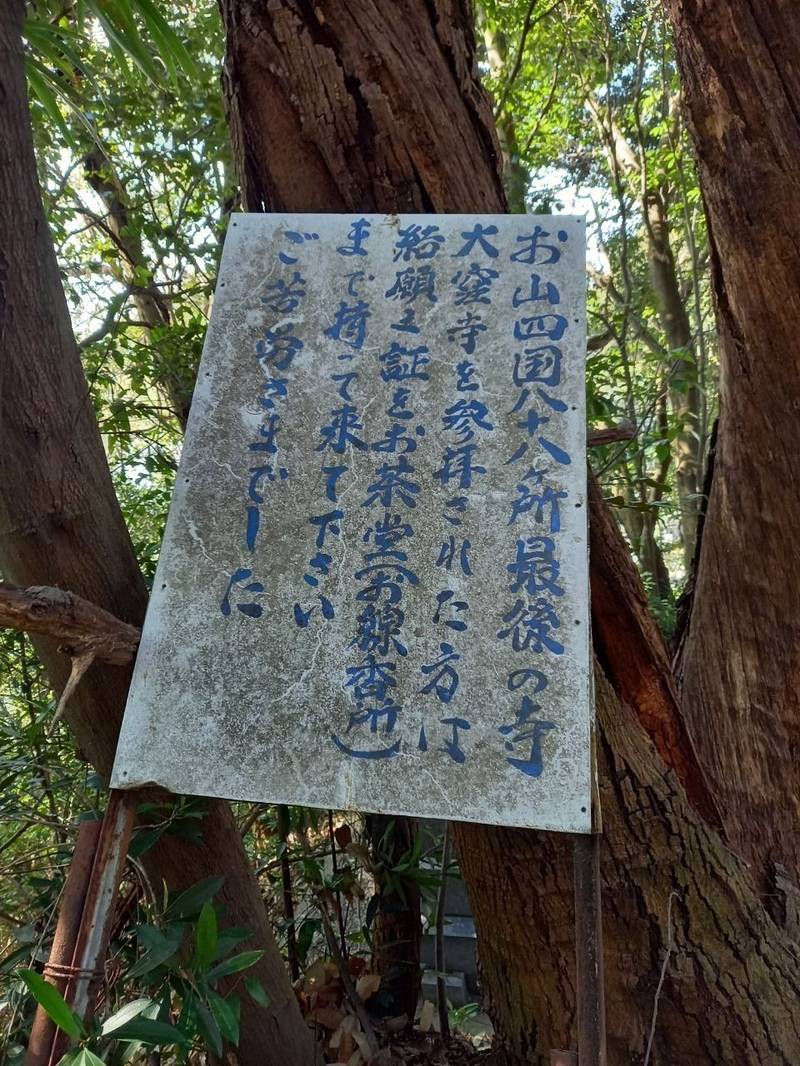 お山四国八十八ヶ所最後の寺
大窪寺を参拝された方は
結願之証をお茶堂(お線香所)
まで持って来て下さい
ご苦労さまでした